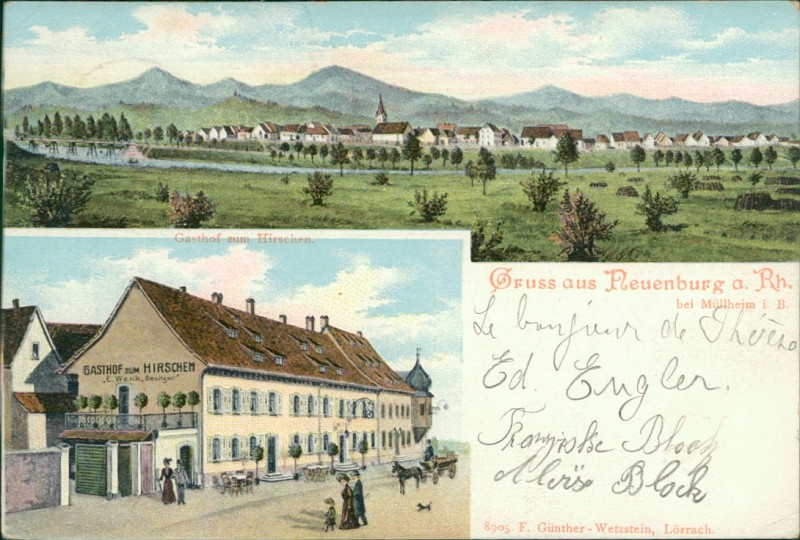 Gasthof zum Hirschen.
GASTHOF ZUM HIRSCHEN
"E. Wenk, Besitzer"
Gruss aus Neuenburg a. Rh.
bei Müllheim i. B.
Le bonjour de Thérèse
Ed. Engler.
Franziska Block
Aloïse Block
8905. F. Günther-Wetzstein, Lörrach.